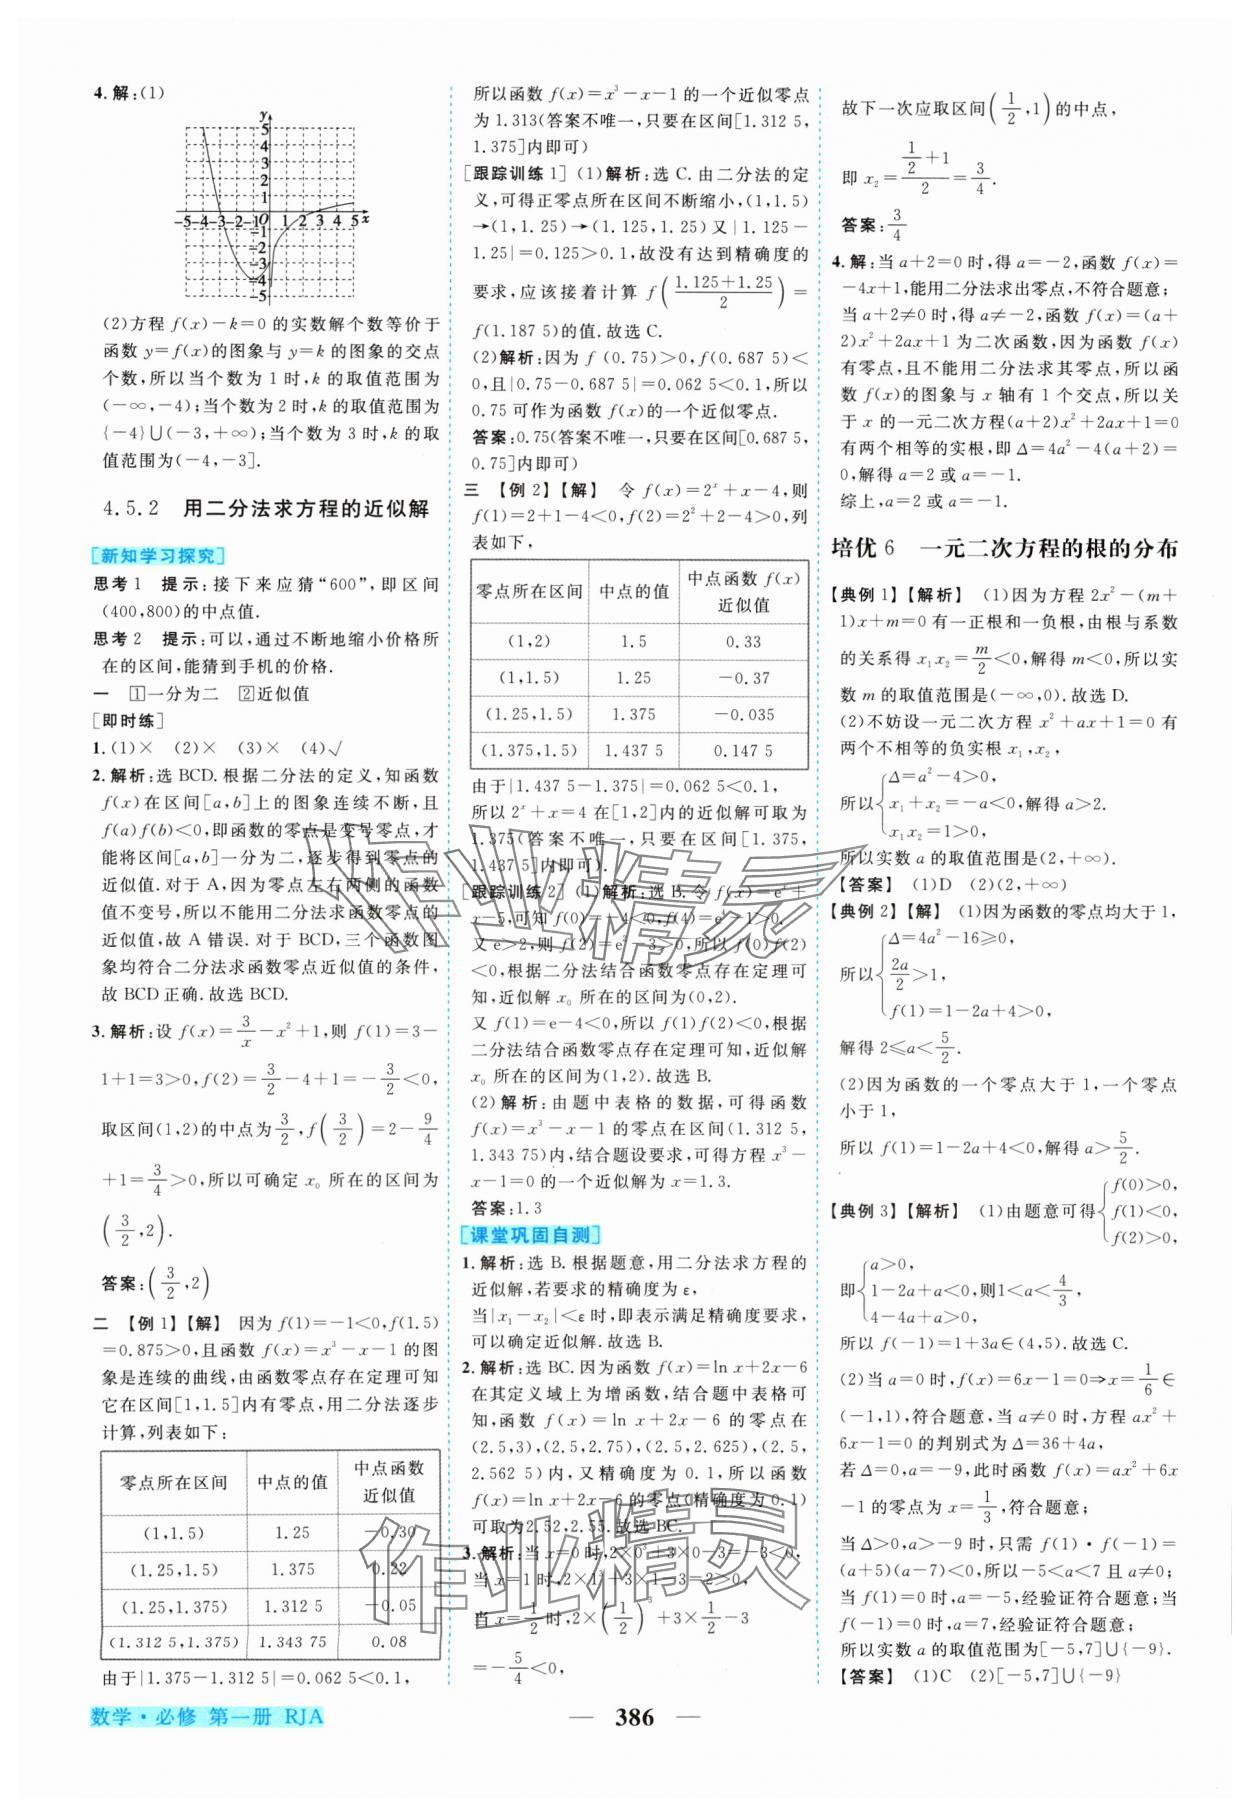 4.解:(1)
y
5
4
3
2
1
-5-4-3-2-1 O 1 2 3 4 5 x
-1
-2
-3
-4
-5
(2)方程 f(x)-k=0 的实数解个数等价于
函数 y=f(x)的图象与 y=k 的图象的交点
个数,所以当个数为 1 时,k 的取值范围为
(-∞,-4);当个数为 2 时,k 的取值范围为
{-4}∪(-3,+∞);当个数为 3 时,k 的取
值范围为(-4,-3].
4.5.2 用二分法求方程的近似解
[新知学习探究]
思考 1 提示:接下来应猜“600”,即区间
(400,800)的中点值.
思考 2 提示:可以,通过不断地缩小价格所
在的区间,能猜到手机的价格.
一 ①一分为二 ②近似值
[即时练]
1.(1)× (2)× (3)× (4)√
2.解析:选 BCD.根据二分法的定义,知函数
f(x)在区间[a,b]上的图象连续不断,且
f(a)f(b)<0,即函数的零点是变号零点,才
能将区间[a,b]一分为二,逐步得到零点的
近似值.对于 A,因为零点左右两侧的函数
值不变号,所以不能用二分法求函数零点的
近似值,故 A 错误.对于 BCD,三个函数图
象均符合二分法求函数零点近似值的条件,
故 BCD 正确.故选 BCD.
3.解析:设 f(x)=3/x-x²+1,则 f(1)=3-
1+1=3>0,f(2)=3/2-4+1=-3/2<0,
取区间(1,2)的中点为3/2,f(3/2)=2-9/4
+1=3/4>0,所以可确定 x₀ 所在的区间为
(3/2,2).
答案:(3/2,2)
二 【例 1】【解】 因为 f(1)=-1<0,f(1.5)
=0.875>0,且函数 f(x)=x³-x-1 的图
象是连续的曲线,由函数零点存在定理可知
它在区间[1,1.5]内有零点,用二分法逐步
计算,列表如下:
零点所在区间 中点的值 中点函数近似值
(1,1.5) 1.25 -0.30
(1.25,1.5) 1.375 0.22
(1.25,1.375) 1.312 5 -0.05
(1.312 5,1.375) 1.343 75 0.08
由于|1.375-1.312 5|=0.062 5<0.1,
所以函数 f(x)=x³-x-1 的一个近似零点
为 1.313(答案不唯一,只要在区间[1.312 5,
1.375]内即可)
[跟踪训练 1] (1)解析:选 C.由二分法的定
义,可得正零点所在区间不断缩小,(1,1.5)
→(1,1.25)→(1.125,1.25)又|1.125-
1.25|=0.125>0.1,故没有达到精确度的
要求,应该接着计算 f((1.125+1.25)/2)=
f(1.187 5)的值.故选 C.
(2)解析:因为 f (0.75)>0,f(0.687 5)<
0,且|0.75-0.687 5|=0.062 5<0.1,所以
0.75可作为函数 f(x)的一个近似零点.
答案:0.75(答案不唯一,只要在区间[0.687 5,
0.75]内即可)
三 【例 2】【解】 令 f(x)=2ˣ+x-4,则
f(1)=2+1-4<0,f(2)=2²+2-4>0,列
表如下,
零点所在区间 中点的值 中点函数 f(x)近似值
(1,2) 1.5 0.33
(1,1.5) 1.25 -0.37
(1.25,1.5) 1.375 -0.035
(1.375,1.5) 1.437 5 0.147 5
由于|1.437 5-1.375|=0.062 5<0.1,
所以 2ˣ+x=4 在[1,2]内的近似解可取为
1.375(答案不唯一,只要在区间[1.375,
1.437 5]内即可).
[跟踪训练 2] (1)解析:选 B.令 f(x)=eˣ+
x-5,可知 f(0)=-4<0,f(4)=e⁴-1>0,
又 e>2,则 f(2)=e²-3>0,所以 f(0)f(2)
<0,根据二分法结合函数零点存在定理可
知,近似解 x₀ 所在的区间为(0,2).
又 f(1)=e-4<0,所以 f(1)f(2)<0,根据
二分法结合函数零点存在定理可知,近似解
x₀ 所在的区间为(1,2).故选 B.
(2)解析:由题中表格的数据,可得函数
f(x)=x³-x-1 的零点在区间(1.312 5,
1.343 75)内,结合题设要求,可得方程 x³-
x-1=0 的一个近似解为 x=1.3.
答案:1.3
[课堂巩固自测]
1.解析:选 B.根据题意,用二分法求方程的
近似解,若要求的精确度为 ε,
当|x₁-x₂|<ε 时,即表示满足精确度要求,
可以确定近似解.故选 B.
2.解析:选 BC.因为函数 f(x)=ln x+2x-6
在其定义域上为增函数,结合题中表格可
知,函数 f(x)=ln x+2x-6 的零点在
(2.5,3),(2.5,2.75),(2.5,2.625),(2.5,
2.562 5)内,又精确度为 0.1,所以函数
f(x)=ln x+2x-6 的零点(精确度为 0.1)
可取为2.52,2.55.故选 BC.
3.解析:当 x=0时,2×0³+3×0-3=-3<0,
当 x=1 时,2×1³+3×1-3=2>0,
当 x=1/2时,2×(1/2)³+3×1/2-3
=-5/4<0,
故下一次应取区间(1/2,1)的中点,
即 x₂=(1/2+1)/2=3/4.
答案:3/4
4.解:当 a+2=0 时,得 a=-2,函数 f(x)=
-4x+1,能用二分法求出零点,不符合题意;
当 a+2≠0 时,得 a≠-2,函数 f(x)=(a+
2)x²+2ax+1 为二次函数,因为函数 f(x)
有零点,且不能用二分法求其零点,所以函
数 f(x)的图象与 x 轴有 1 个交点,所以关
于 x 的一元二次方程(a+2)x²+2ax+1=0
有两个相等的实根,即 Δ=4a²-4(a+2)=
0,解得 a=2 或 a=-1.
综上,a=2 或 a=-1.
培优 6 一元二次方程的根的分布
【典例 1】【解析】 (1)因为方程 2x²-(m+
1)x+m=0 有一正根和一负根,由根与系数
的关系得 x₁x₂=m/2<0,解得 m<0,所以实
数 m 的取值范围是(-∞,0).故选 D.
(2)不妨设一元二次方程 x²+ax+1=0 有
两个不相等的负实根 x₁,x₂,
所以{Δ=a²-4>0,
x₁+x₂=-a<0,解得 a>2.
x₁x₂=1>0,
所以实数 a 的取值范围是(2,+∞).
【答案】 (1)D (2)(2,+∞)
【典例 2】【解】 (1)因为函数的零点均大于 1,
所以{Δ=4a²-16≥0,
2a/2>1,
f(1)=1-2a+4>0,
解得 2≤a<5/2.
(2)因为函数的一个零点大于 1,一个零点
小于 1,
所以 f(1)=1-2a+4<0,解得 a>5/2.
【典例 3】【解析】 (1)由题意可得{f(0)>0,
f(1)<0,
f(2)>0,
即{a>0,
1-2a+a<0,则1<a<4/3,
4-4a+a>0,
所以 f(-1)=1+3a∈(4,5).故选 C.
(2)当 a=0 时,f(x)=6x-1=0⇒x=1/6∈
(-1,1),符合题意,当 a≠0 时,方程 ax²+
6x-1=0 的判别式为 Δ=36+4a,
若 Δ=0,a=-9,此时函数 f(x)=ax²+6x
-1 的零点为 x=1/3,符合题意;
当 Δ>0,a>-9 时,只需 f(1)·f(-1)=
(a+5)(a-7)<0,所以-5<a<7且a≠0;
当 f(1)=0 时,a=-5,经验证符合题意;
当 f(-1)=0 时,a=7,经验证符合题意,
所以实数 a 的取值范围为[-5,7]∪{-9}.
【答案】 (1)C (2)[-5,7]∪{-9}
数学·必修 第一册 RJA
386
作业精灵
作业精灵